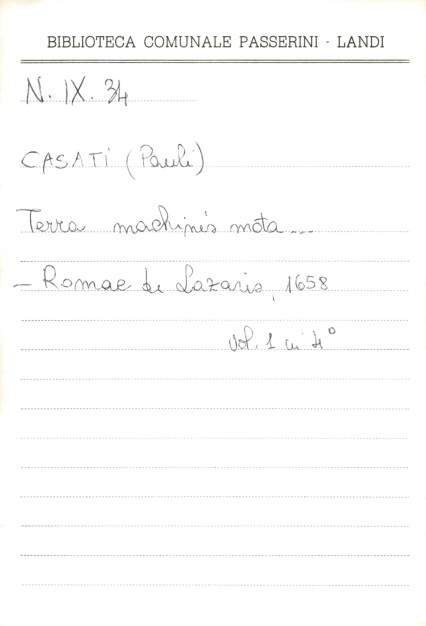 BIBLIOTECA COMUNALE PASSERINI - LANDI
N. IX. 34
CASATI (Pauli)
Terra machinis mota...
- Romae de Lazaris, 1658
vol. 1 in 4°